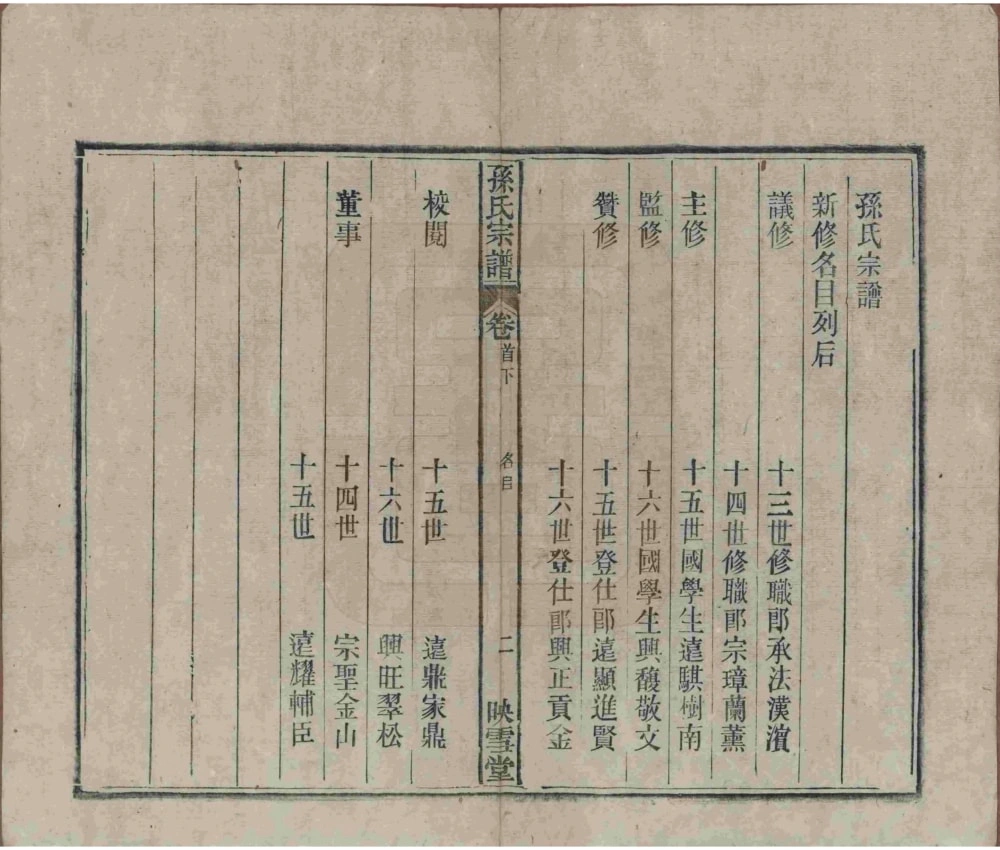 孫氏宗譜
新修名目列后
議修　十三世修職郎承法漢濱
十四世修職郎宗璋蘭薰
主修　十五世國學生遠騏樹南
監修　十六世國學生興馥敬文
贊修　十五世登仕郎遠顯進賢
十六世登仕郎興正貢金
孫氏宗譜　卷首下　名目　二　映雪堂
校閱　十五世　遠鼎家鼎
十六世　興旺翠松
董事　十四世　宗聖金山
十五世　遠耀輔臣